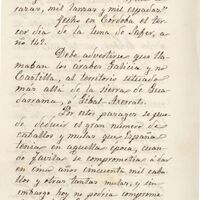 mil lanzas y mil escudos."
fecho en Córdoba el ter
cer dia de la luna de Safer, a
ño 142.
Debe advertirse que lla
maban los árabes Galicia y no
Castilla, al territorio situado
mas allá de la sierra de Gua
darrama, ó Gibal-Axerrat.
Por estos parages se pue
de deducir el gran número de
caballos y mulas que España
tenia en aquella época, cuan
do se comprometian á dar
en cinco años cincuenta mil caba
llos y otras tantas mulas, y sin
embargo hoy no podria comprome